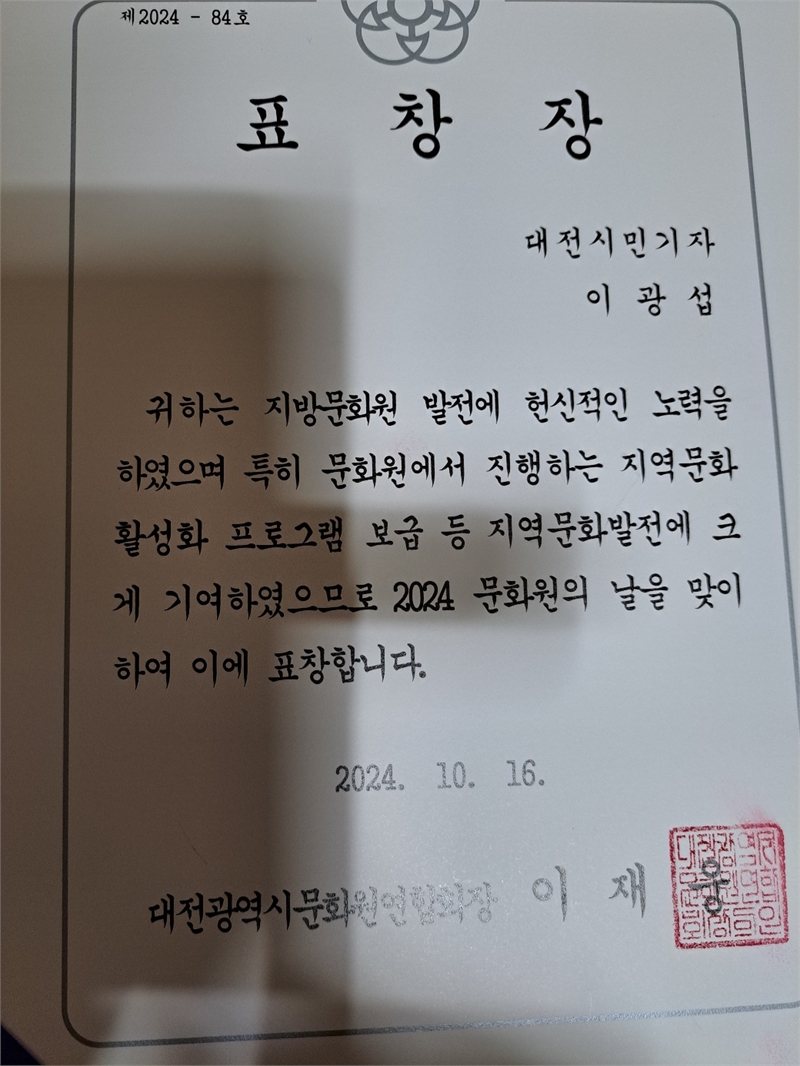 제2024 - 84호
표 창 장
대전시민기자
이 광 섭
귀하는 지방문화원 발전에 헌신적인 노력을
하였으며 특히 문화원에서 진행하는 지역문화
활성화 프로그램 보급 등 지역문화발전에 크
게 기여하였으므로 2024 문화원의 날을 맞이
하여 이에 표창합니다.
2024. 10. 16.
대전광역시문화원연합회장 이 재 웅